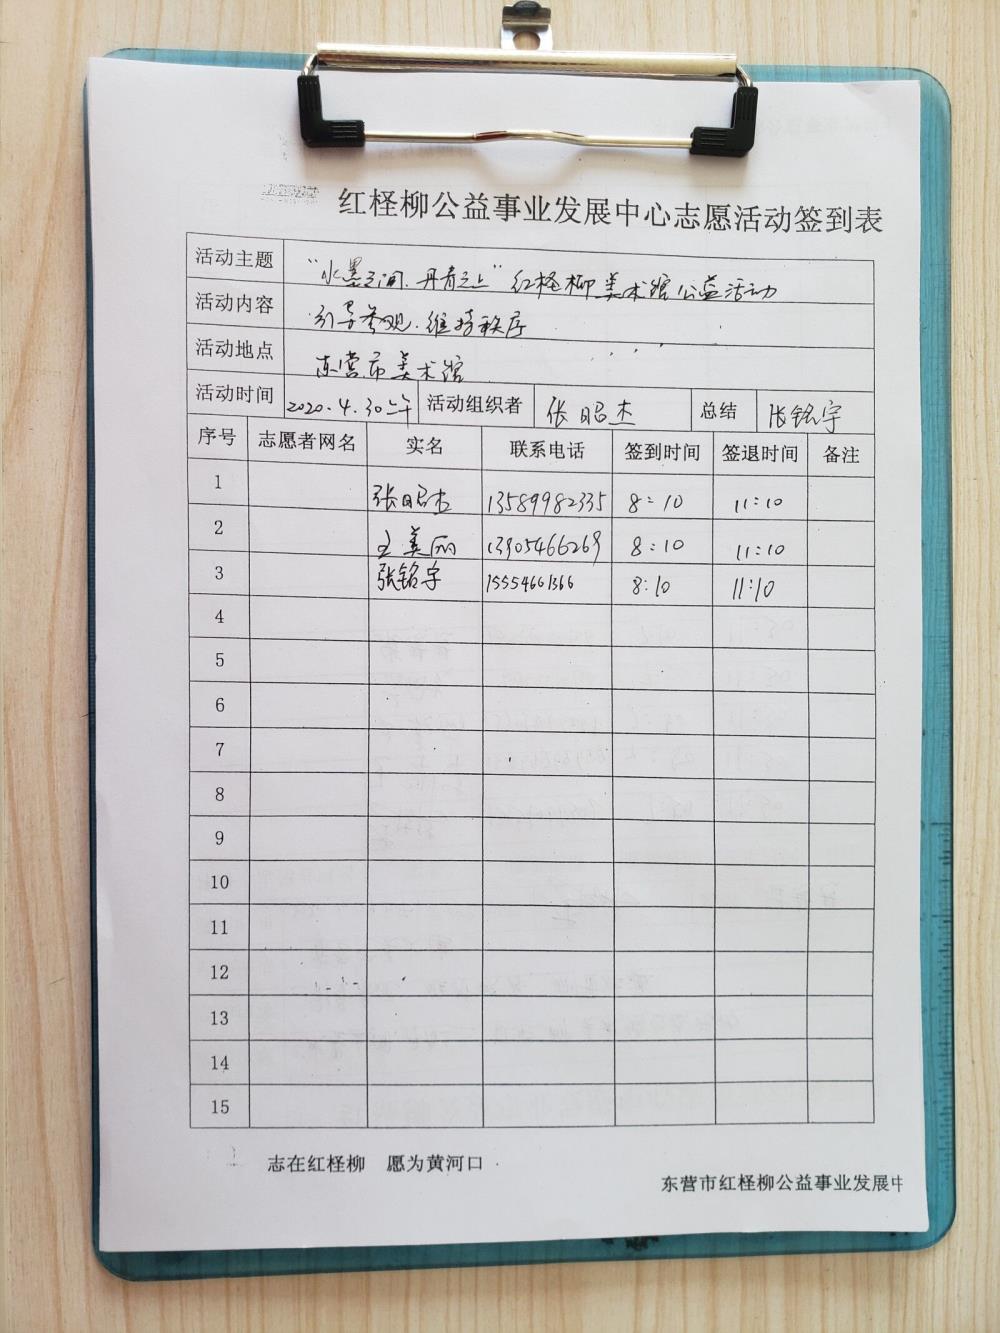 红柽柳公益事业发展中心志愿活动签到表
活动主题 “水墨之间.丹青之上”红柽柳美术馆公益活动
活动内容 引导参观.维持秩序
活动地点 东营市美术馆
活动时间 2020.4.30上午 活动组织者 张昭杰 总结 张铭宇
序号 志愿者网名 实名 联系电话 签到时间 签退时间 备注
1 张昭杰 13589982335 8:10 11:10
2 王美丽 13905466269 8:10 11:10
3 张铭宇 15554661366 8:10 11:10
4
5
6
7
8
9
10
11
12
13
14
15
志在红柽柳 愿为黄河口
东营市红柽柳公益事业发展中